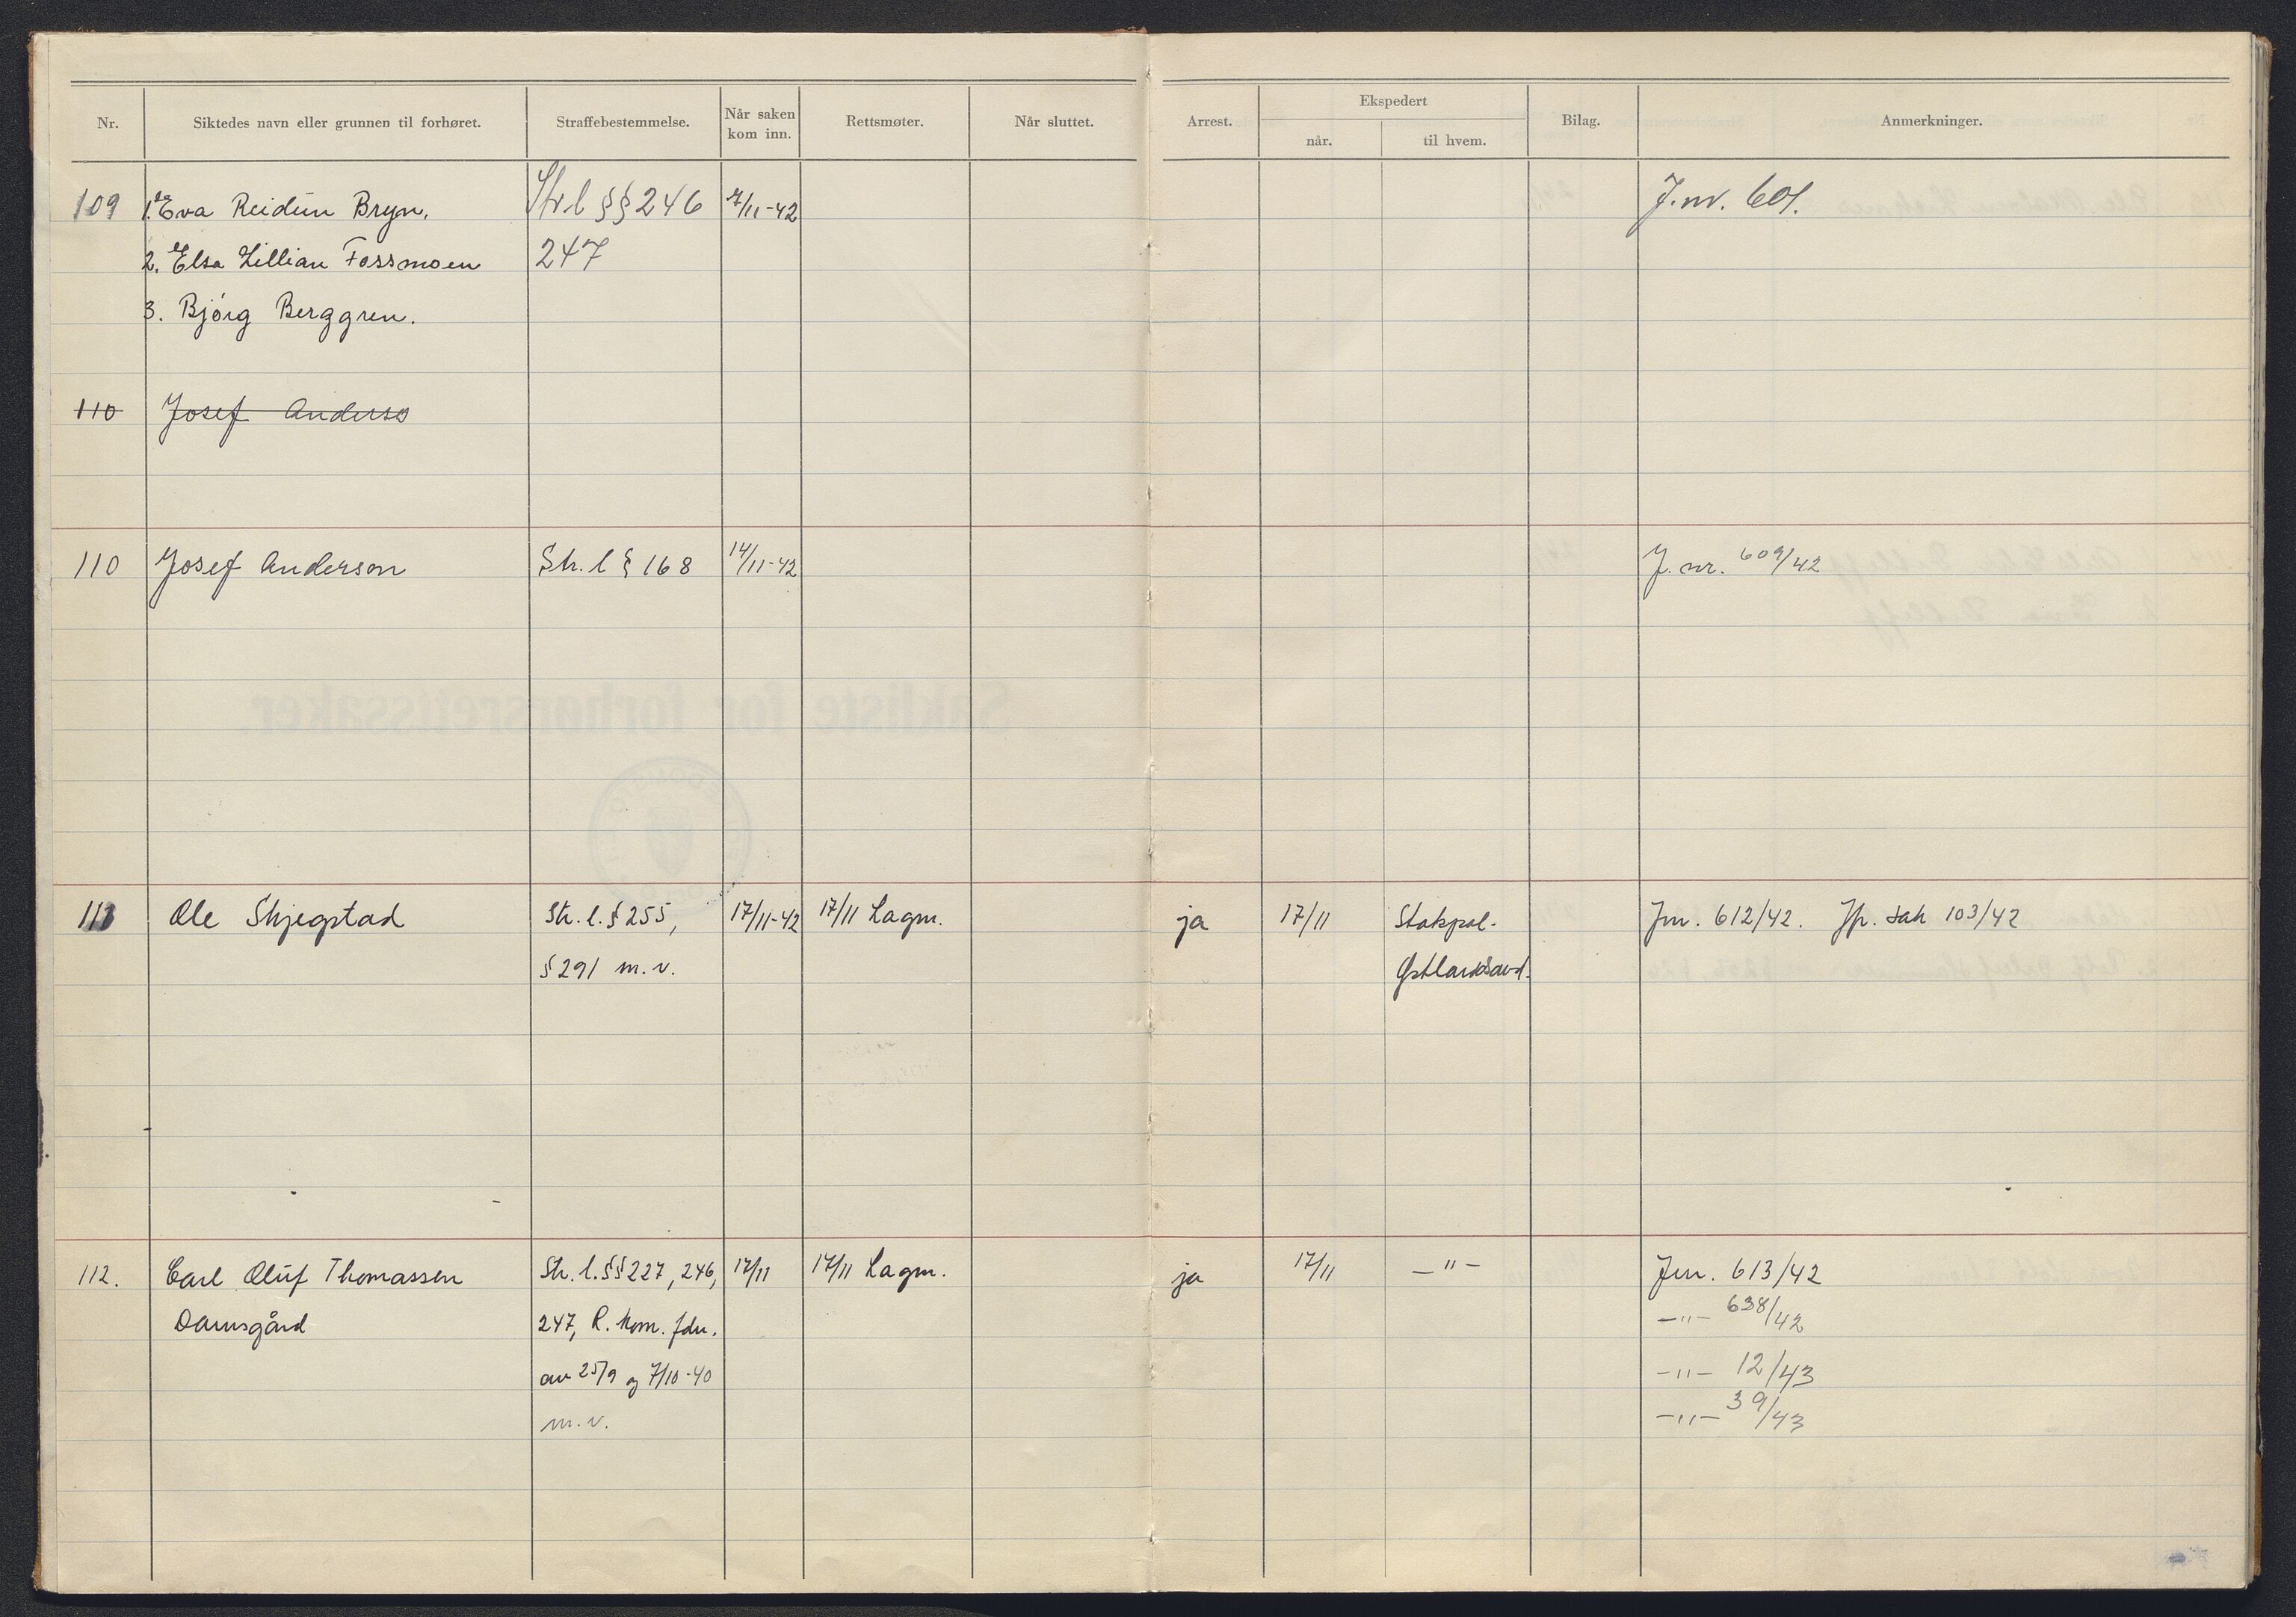 Nr. Siktedes navn eller grunnen til forhøret. Straffebestemmelse. Når saken kom inn. Rettsmøter. Når sluttet. Arrest. Ekspedert når. til hvem. Bilag. Anmerkninger.
109 1. Eva Reidun Bryn. Str l §§ 246 7/11-42 J.nr. 601.
2. Elsa Lillian Fossmoen 247
3. Bjórg Berggren.
110 Josef Anderso
110 Josef Anderson Str. l § 168 14/11-42 J. nr. 609/42
111 Ole Skjegstad Str. l. § 255, 17/11-42 17/11 Lagm. ja 17/11 Statspol. Jnr. 612/42. Jfr. sak 103/42
§ 291 m. v. Østlandsavd.
112. Carl Oluf Thomassen Str. l. §§ 227, 246, 17/11 17/11 Lagm. ja 17/11 —"— Jnr. 613/42
Damsgård 247, R. kom. fdn. —"— 638/42
av 25/9 og 7/10-40 —"— 12/43
m. v. —"— 39/43
Sakliste for forhørsrettssaker.